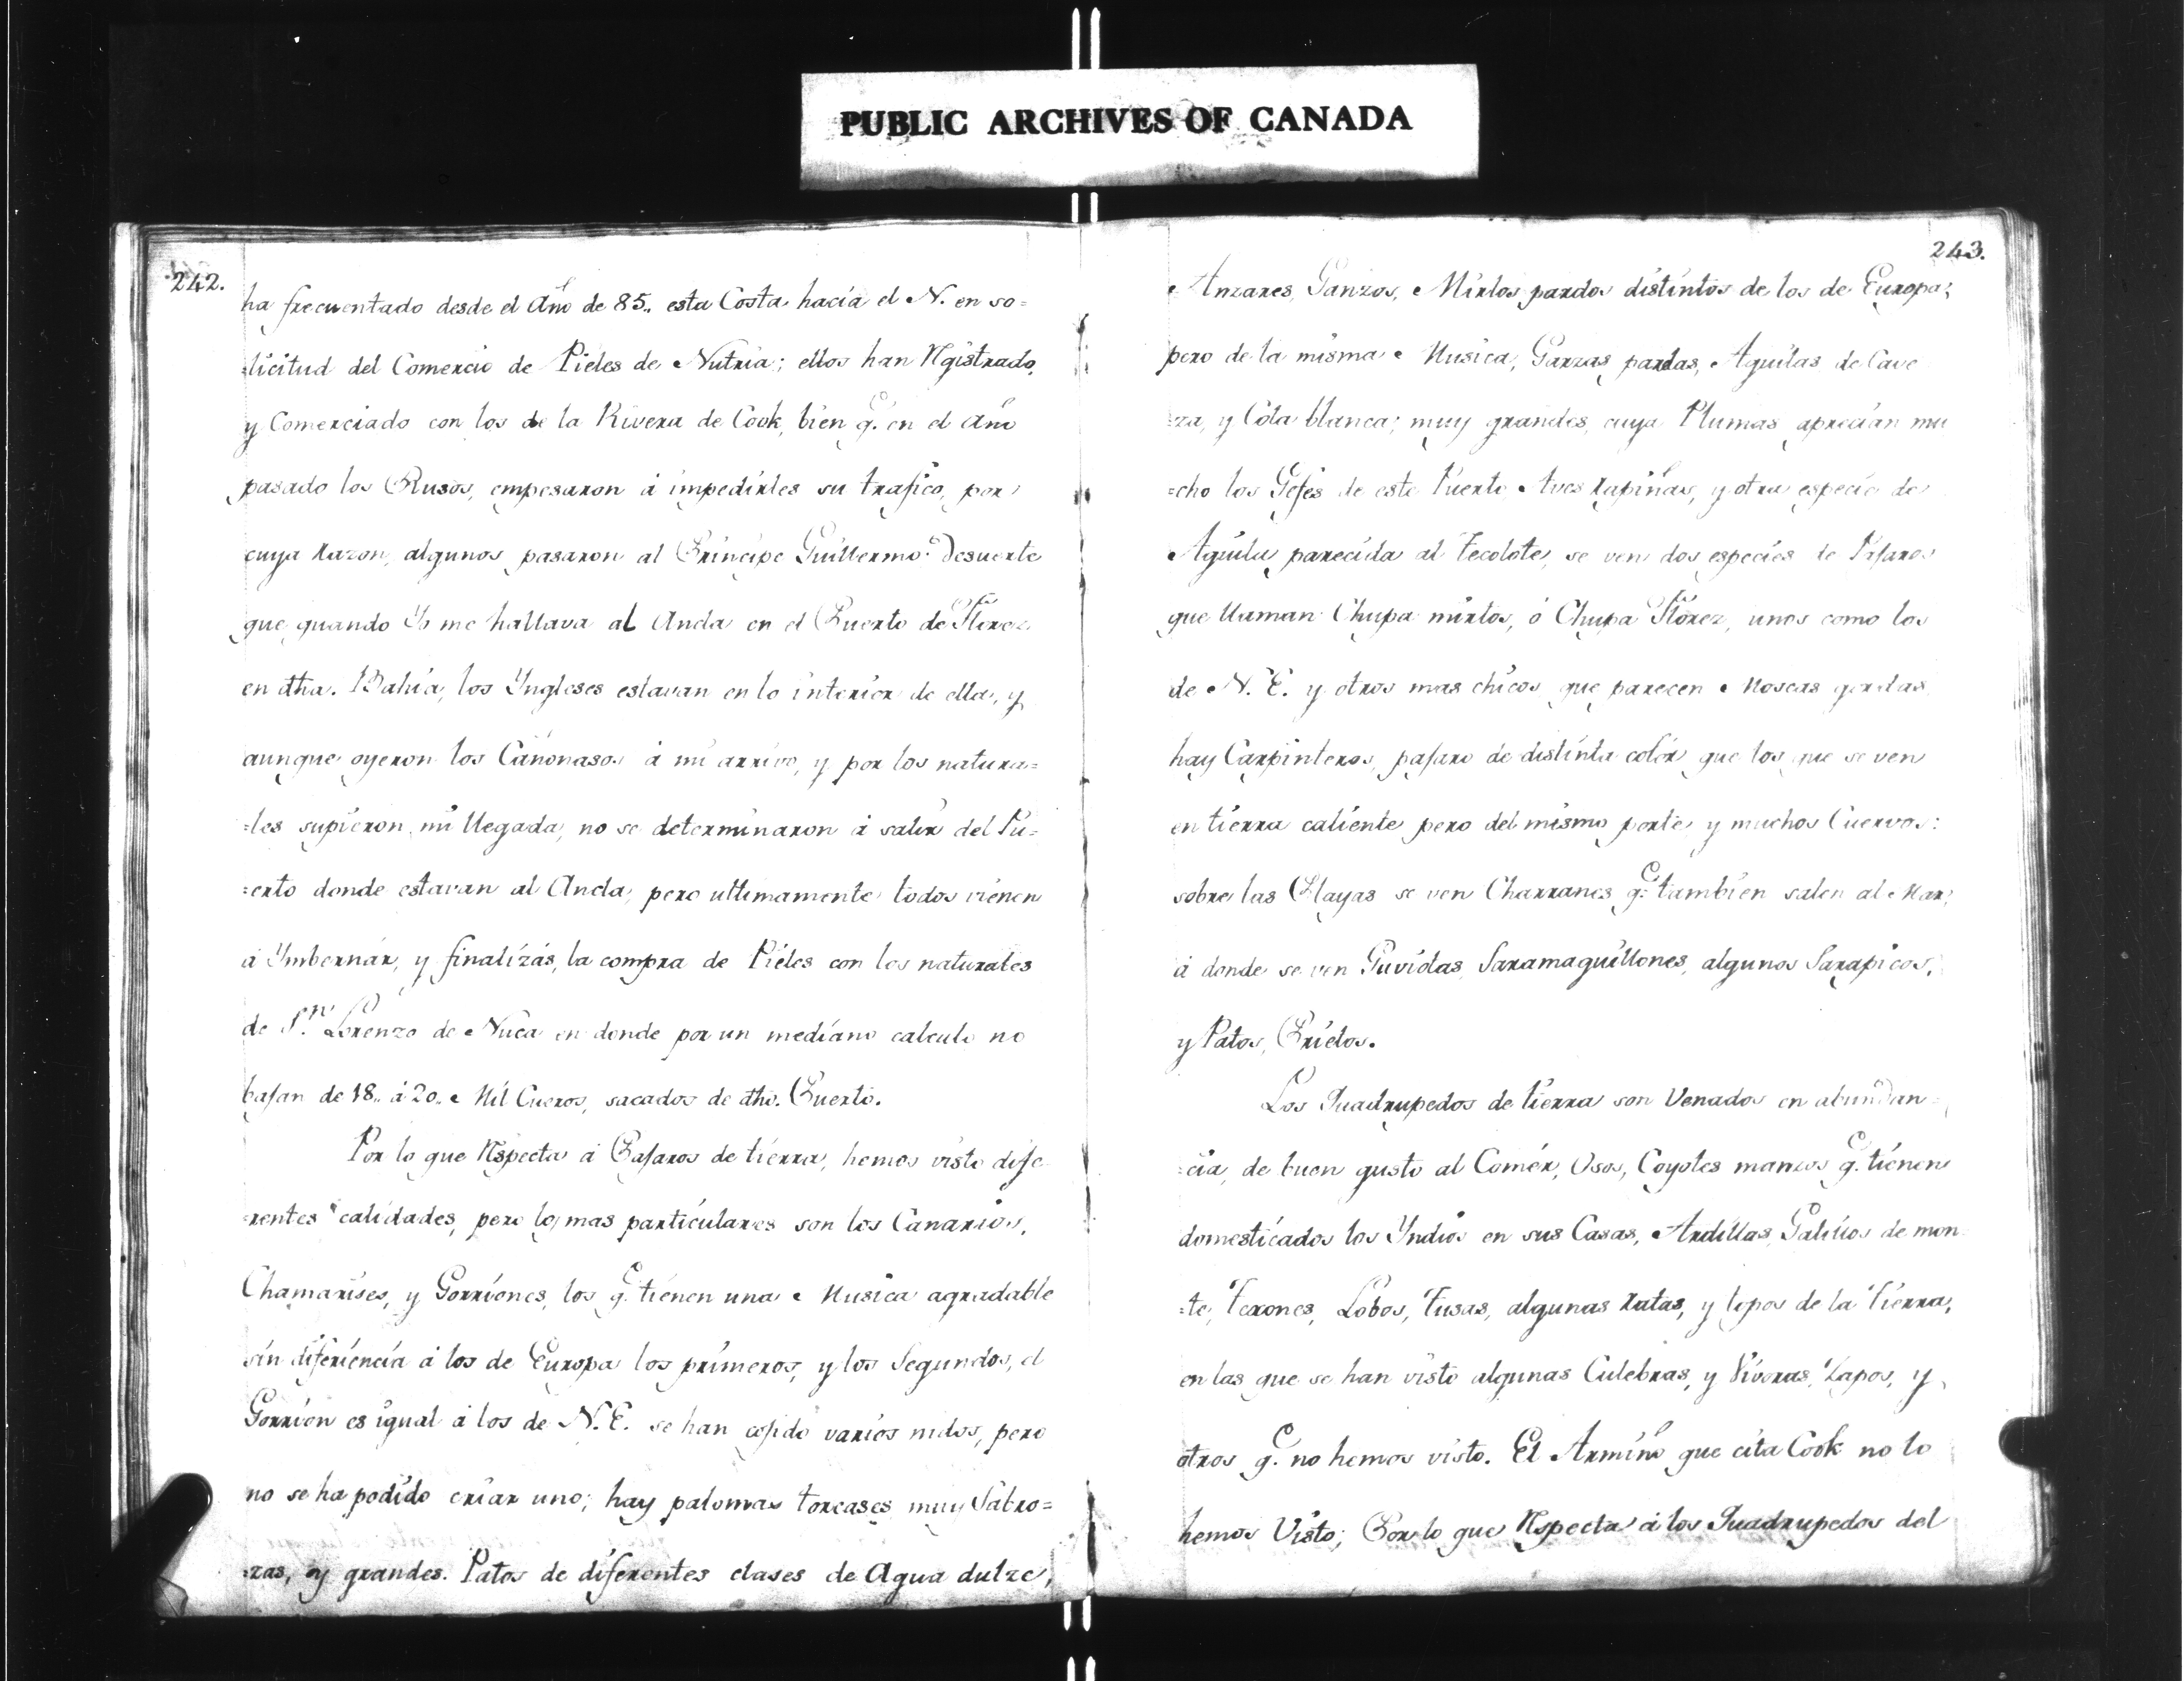 PUBLIC ARCHIVES OF CANADA
242.
ha frecuentado desde el Año de 85,, esta Costa hacía el N. en so=
=licitud del Comercio de Pieles de Nutria; ellos han Registrado,
y Comerciado con los de la Rivera de Cook, bien q.e en el Año
pasado los Rusos, empesaron á impedirles su trafico, por
cuya razon, algunos pasaron al Principe Guillermo: Desuerte
que quando Yo me hallava al Ancla en el Puerto de Florez
en dha. Bahía, los Yngleses estavan en lo interior de ella, y
aunque oyeron los Cañonasos á mi arrivo, y por los natura=
=les supieron mi llegada, no se determinaron á salir del Pu=
=erto donde estavan al Ancla, pero ultimamente todos vienen
á Ymbernár, y finalizás, la compra de Pieles con los naturales
de S.n Lorenzo de Nuca en donde por un mediano calculo no
bajan de 18,, á 20,, Mil Cueros, sacados de dho. Puerto.
Por lo que Respecta á Pajaros de tierra, hemos visto dife
=rentes calidades, pero los mas particulares son los Canarios,
Chamarises, y Gorriones, los q.e tienen una Musica agradable
sin diferiencia á los de Europa los primeros, y los Segundos, el
Gorrion es igual á los de N. E. se han cojido varios nidos, pero
no se ha podido criar uno; hay palomas torcases muy Sabro=
=zas, y grandes. Patos de diferentes clases de Agua dulze,
243.
Anzares, Ganzos, Mirlos pardos distintos de los de Europa;
pero de la misma Musica, Garzas pardas, Aguilas de Cave
=za, y Cola blanca; muy grandes, cuya Plumas aprecian mu
=cho los Gefes de este Puerto Aves Rapiñas, y otra especie de
Aguila parecida al Tecolote, se ven dos especies de Pajaros
que llaman Chupa mirtos, ó Chupa Flórez, unos como los
de N. E. y otros mas chicos que parecen Moscas gordas
hay Carpinteros, pajaro de distinta colór que los que se ven
en tierra caliente pero del mismo porte, y muchos Cuervos:
sobre las Playas se ven Charranes q.e tambien salen al Mar,
á donde se ven Gaviotas, Saramaguillones, algunos Sarapicos,
y Patos, Prietos.
Los Quadrupedos de tierra son Venados en abundan=
=cia, de buen gusto al Comér, Osos, Coyotes manzos q.e tienen
domesticados los Yndios en sus Casas, Ardillas, Gatitios de mon
=te, Texones, Lobos, Tusas, algunas Ratas, y topos de la Tierra,
en las que se han visto algunas Culebras, y Vivoras, Zapos, y
otros q.e no hemos visto. El Armiño que cita Cook no lo
hemos Visto; Por lo que Respecta á los Quadrupedos del